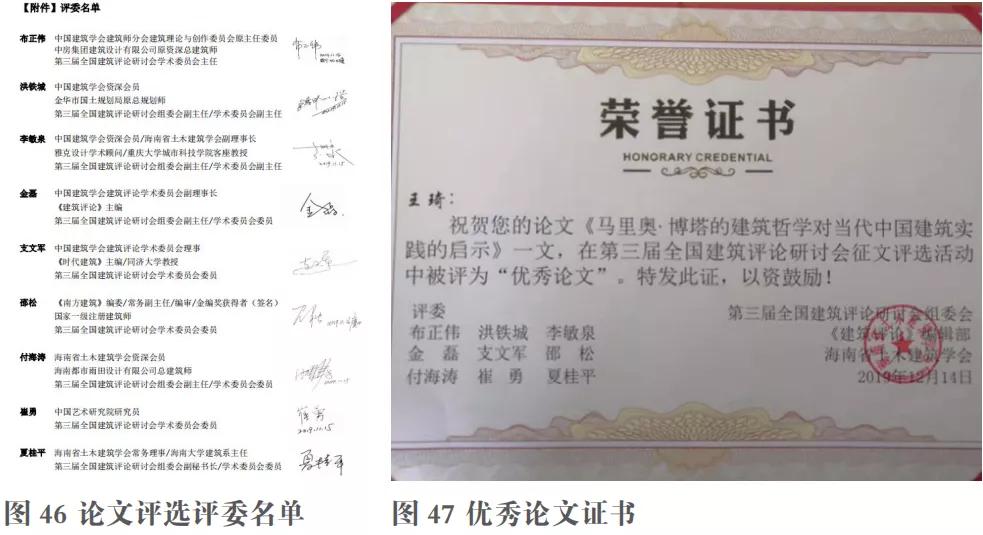 【附件】评委名单
布正伟 中国建筑学会建筑师分会建筑理论与创作委员会原主任委员
中房集团建筑设计有限公司原资深总建筑师
第三届全国建筑评论研讨会学术委员会主任
洪铁城 中国建筑学会资深会员
金华市国土规划局原总规划师
第三届全国建筑评论研讨会组委会副主任/学术委员会副主任
李敏泉 中国建筑学会资深会员/海南省土木建筑学会副理事长
雅克设计学术顾问/重庆大学城市科技学院客座教授
第三届全国建筑评论研讨会组委会副主任/学术委员会副主任
2019.11.15
金磊 中国建筑学会建筑评论学术委员会副理事长
《建筑评论》主编
第三届全国建筑评论研讨会组委会副主任/学术委员会委员
支文军 中国建筑学会建筑评论学术委员会理事
《时代建筑》主编/同济大学教授
第三届全国建筑评论研讨会学术委员会委员
邵松 《南方建筑》编委/常务副主任/编审/金编奖获得者（签名）
国家一级注册建筑师
第三届全国建筑评论研讨会学术委员会委员
付海涛 海南省土木建筑学会资深会员
海南都市雨田设计有限公司总建筑师
第三届全国建筑评论研讨会组委会副主任/学术委员会委员
崔勇 中国艺术研究院研究员
第三届全国建筑评论研讨会学术委员会委员
崔勇
2019.11.15
夏桂平 海南省土木建筑学会常务理事/海南大学建筑系主任
第三届全国建筑评论研讨会组委会副秘书长/学术委员会委员
夏桂平
图 46 论文评选评委名单
荣誉证书
HONORARY CREDENTIAL
王琦：
祝贺您的论文《马里奥·博塔的建筑哲学对当代中国建筑实
践的启示》一文，在第三届全国建筑评论研讨会征文评选活动
中被评为“优秀论文”。特发此证，以资鼓励！
评委
布正伟 洪铁城 李敏泉
金 磊 支文军 邵 松
付海涛 崔 勇 夏桂平
第三届全国建筑评论研讨会组委会
《建筑评论》编辑部
海南省土木建筑学会
2019年12月14日
图 47 优秀论文证书